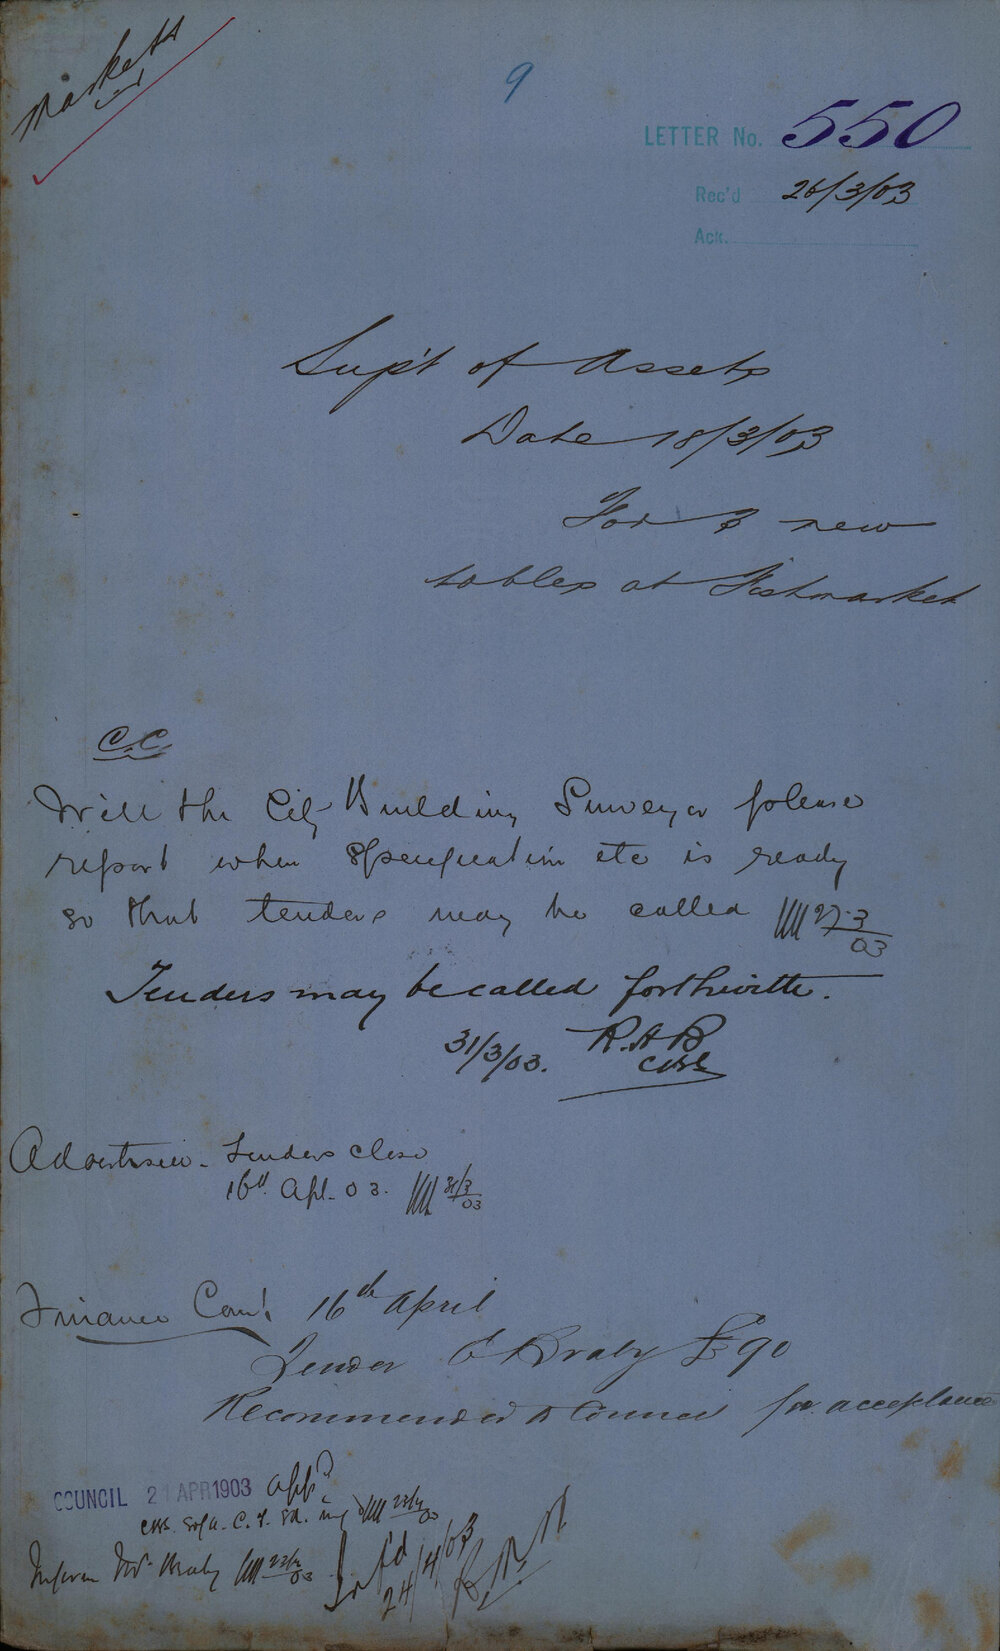 Markets
9
LETTER No. 550
Rec'd 26/3/03
Ack.
Sup't of Assets
Date 18/3/03
For 3 new
tables at Fishmarket
C.C.
Will the City Building Surveyor please
report when specification etc is ready
so that tenders may be called 27.3/03
Tenders may be called forthwith.
31/3/03. R.H.B
CBS
Advertise - Tenders close
16th Apl. 03. 31/3/03
Finance Com. 16th April
Tender C Braby £90
Recommended to Council for acceptance
COUNCIL 21 APR 1903 App'd
CBS. Sof A. C.T. 22/4/03
Inform Mr Braby 22/4/03
Inf'd
24/4/03